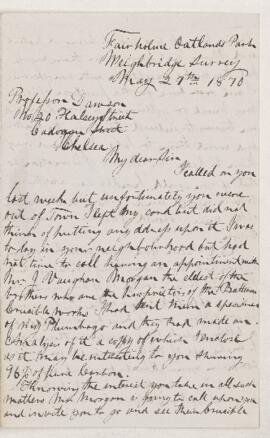 Fairholme Oatlands Park
Weighbridge Surrey
May 27th 1870
Professor Dawson
No 20 Halsey Street
Cadogan Street
Chelsea
My dear Sir
I called on you
last week but unfortunately you were
out of Town I left my card but did not
think of putting my address upon it I was
to day in your neighbourhood but had
not time to call having an appointment with
Mr J Vaughan Morgan the eldest of the
brothers who are the proprietors of the Battersea
Crucible works I had sent them a specimen
of my Plumbago and they had made an
analysis of it a copy of which I enclose
as it may be interesting to you shewing
96% of pure Carbon.
Knowing the interest you take in all such
matters Mr Morgan is going to call upon you
and invite you to go and see their Crucible